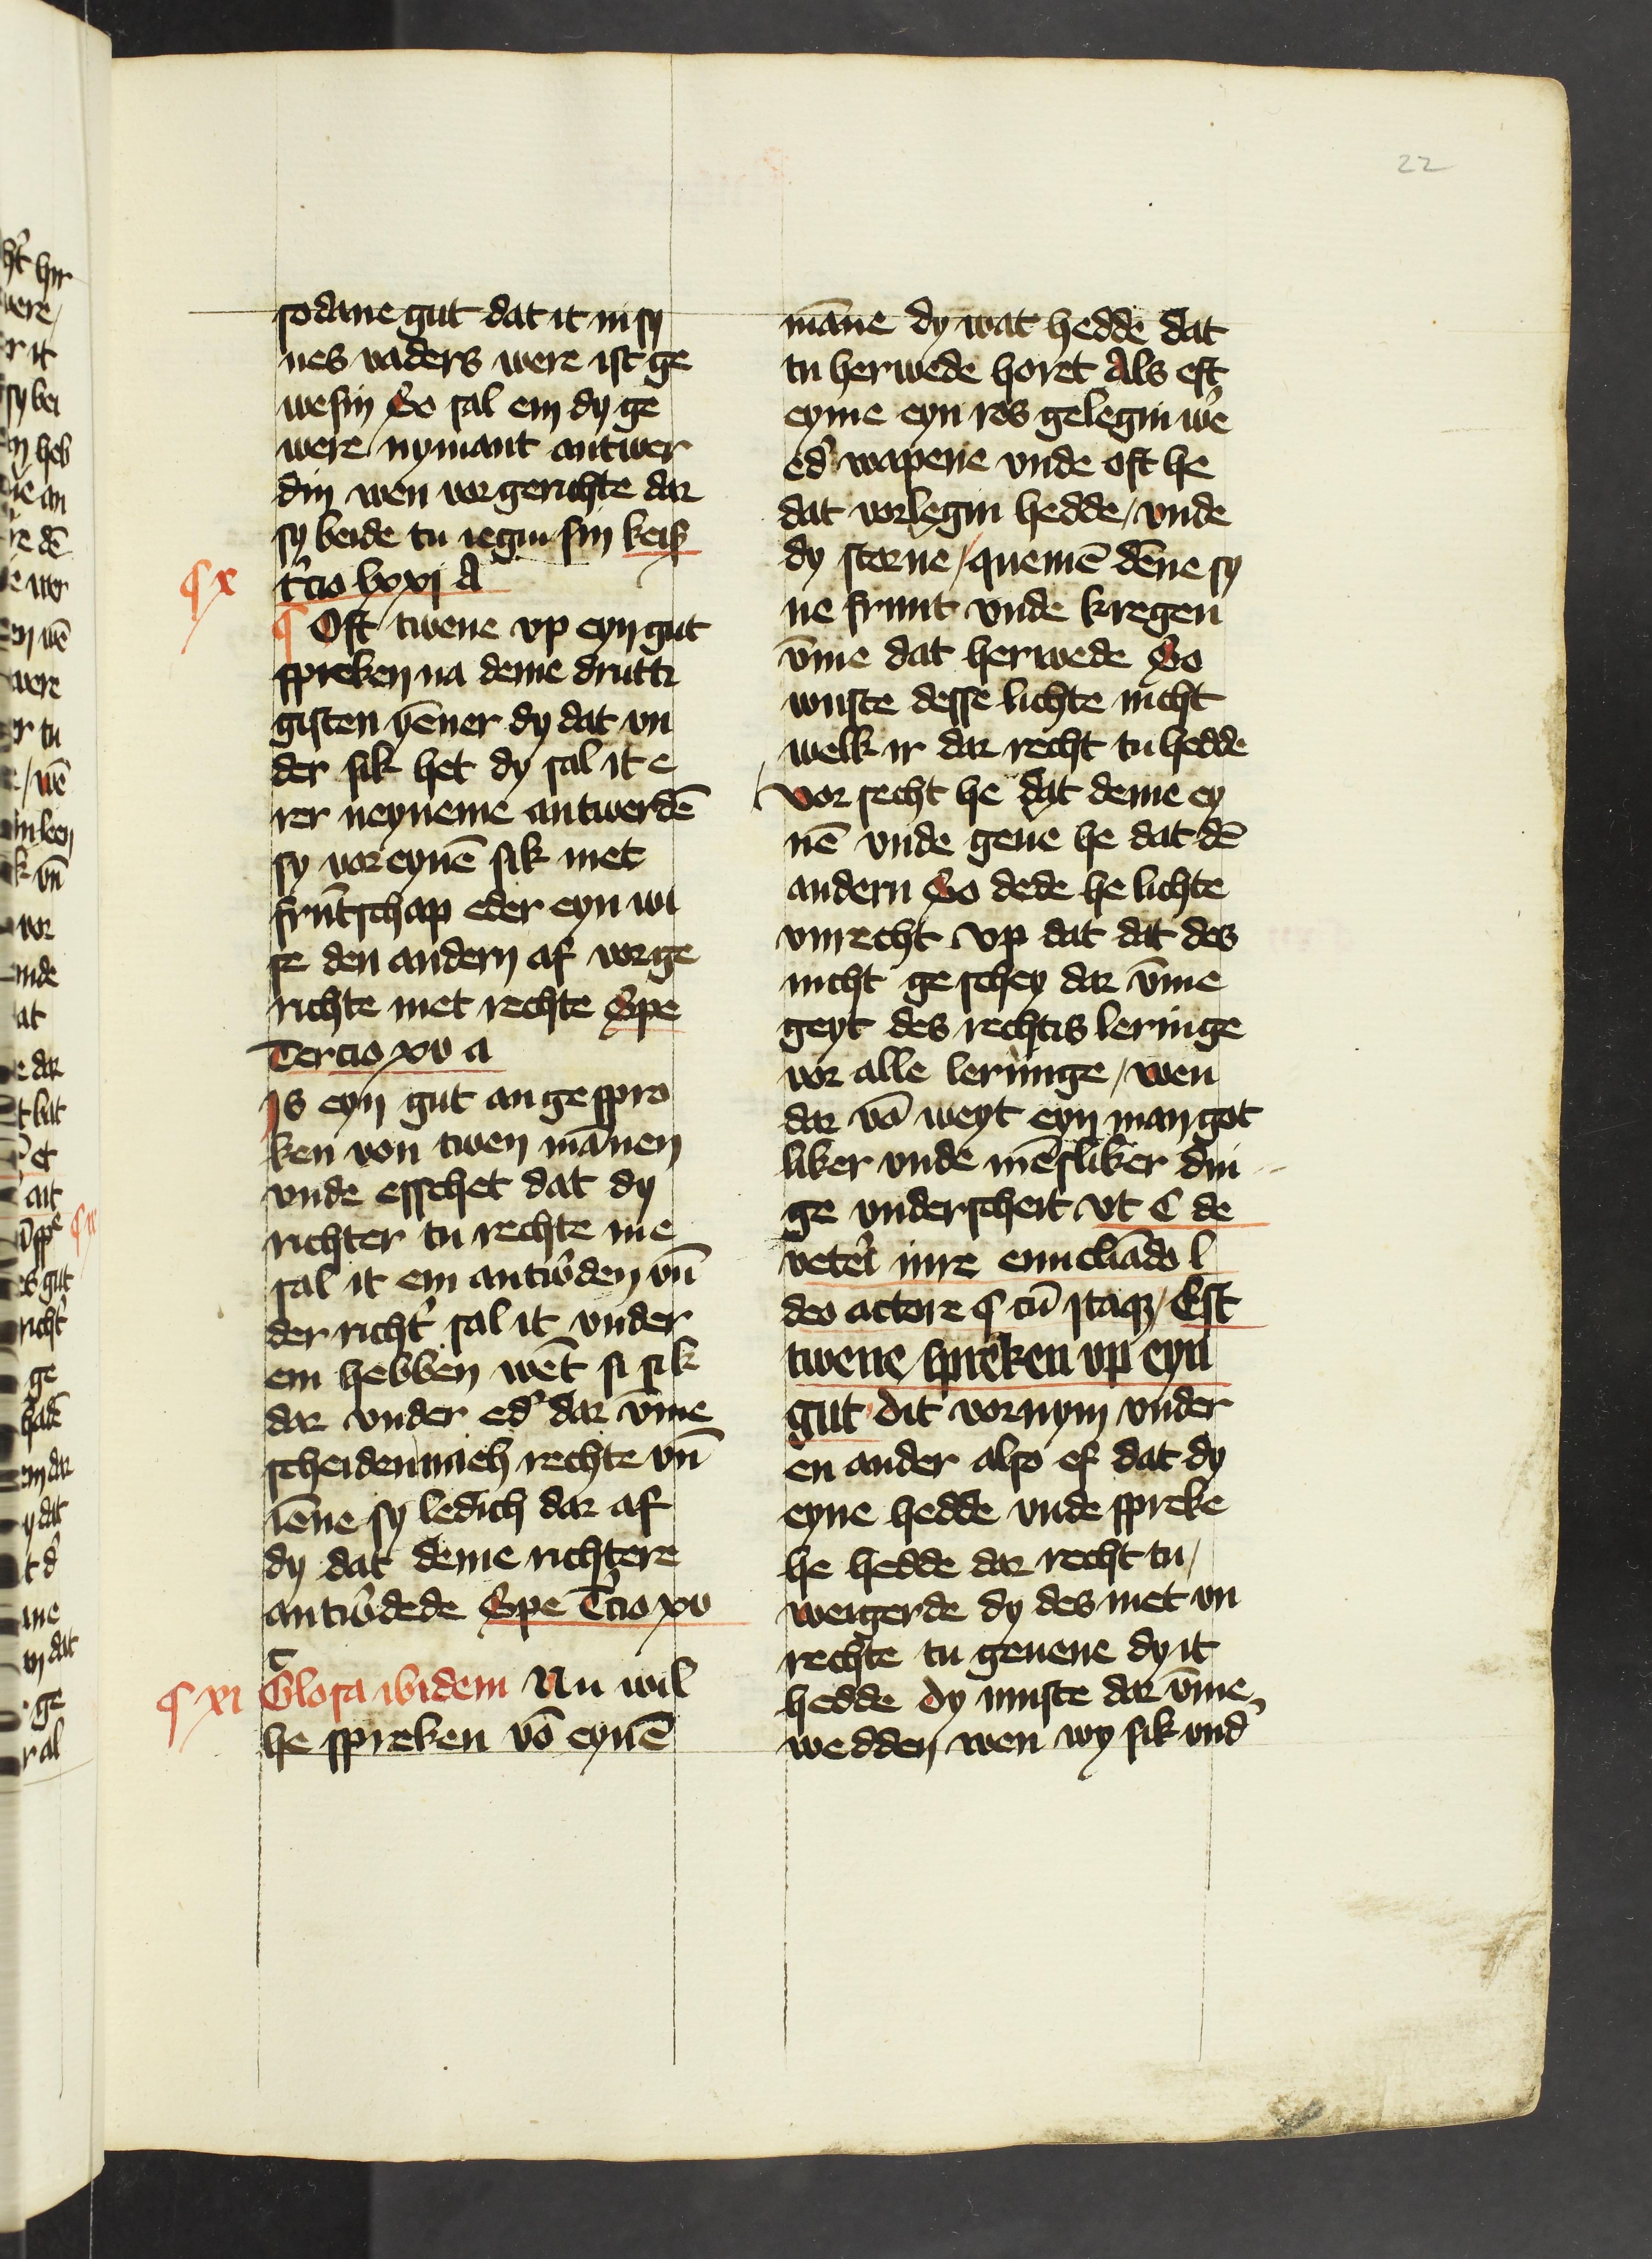 22
sodane gut dat it in sy
nes vaders were ist ge
wesin So sal em dy ge
were nymant antwer
din wen vor gerichte dar
sy beide tu iegin sin keiß
¶ x
t'cio lxxxi A
¶ Oft twene vp eyn gut
spreken na deme drutti
gisten yēner dy dat vn
der sik het dy sal it e
rer neyneme antwerdē
sy vor eynē sik met
frūtschap eder eyn wi
se den andern af vor ge
richte met rechte Spe
Tercio xv a
Is eyn gut an gespro
ken von twen mānen
vnde esschet dat dy
richter tu rechte me
sal it em antw'den vn̄
der richt' sal it vnder
em hebben wēt si sik
dar vnder ed' dar v̄me
scheiden mich rechte vn̄
iēne sy ledich dar af
dy dat deme richtere
antw'dede Spe T'cio xv
c
¶ xi Glosa ibidem Nu wil
he spreken vō eynē
māne dy wat hedde dat
tu herwede horet Als eft
eyme eyn ros gelegin w'e
ed' wapene vnde oft he
dat vorlegin hedde / vnde
dy storue / quemē dēne sy
ne frunt vnde kregen
v̄me dat herwede So
wuste desse lichte nicht
welk ir dar recht tu hedde
vor secht he dat deme ey
nē vnde geue he dat dē
andern So dede he lichte
vnrecht vp dat dat des
nicht geschey dar v̄me
geyt des rechtis leringe
vor alle leringe / wen
dar vō weyt eyn man got
liker vnde mēsliker din
ge vnderscheit vt C de
vete'i iure enucliādo l
deo actore ¶ cū itaq3 / Est
twene spreken vp eyn
gut dit vornym vnder
en ander also ef dat dy
eyne hedde vnde spreke
he hedde dar recht tu /
weigerde dy des met vn
rechte tu geuene dy it
hedde dy muste dar v̄me
wedden wen wy sik vnd'